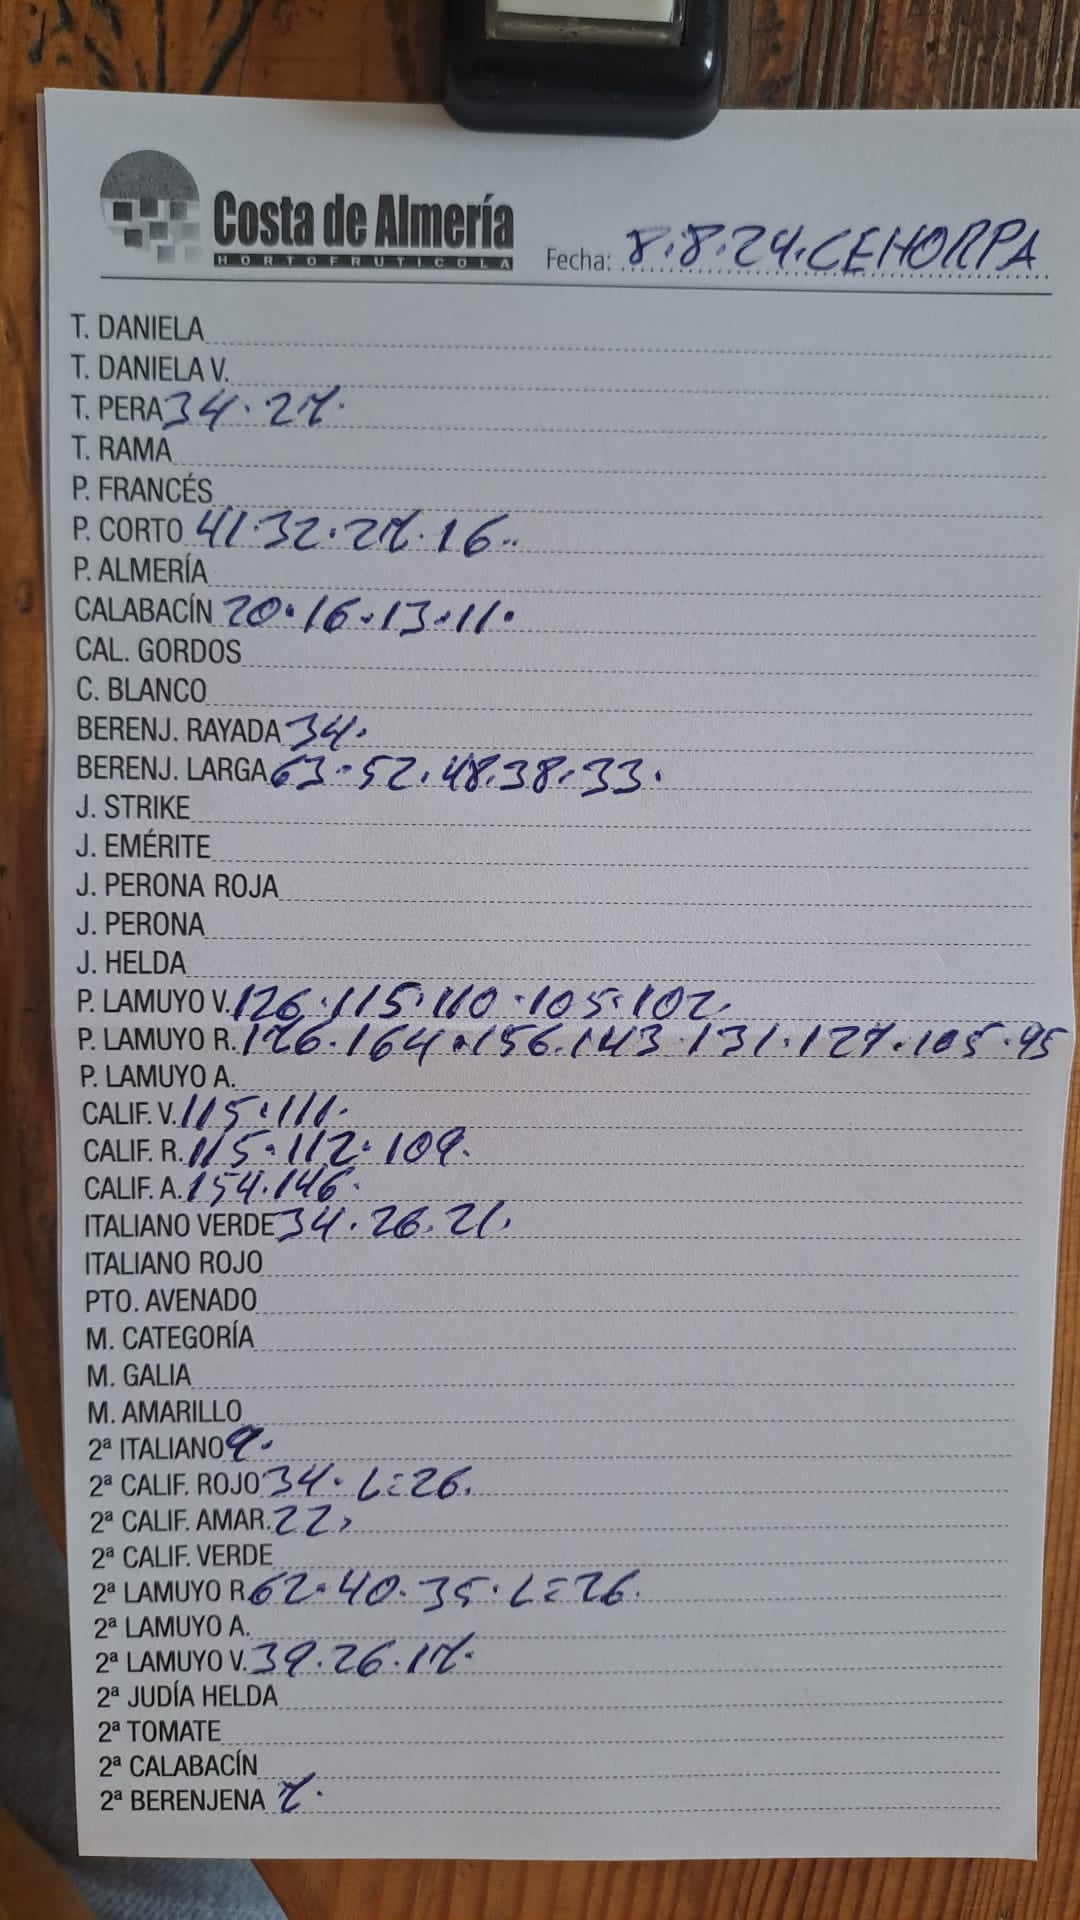 Costa de Almería
HORTOFRUTICOLA
Fecha: 8.8.24. CEHORPA
T. DANIELA
T. DANIELA V.
T. PERA 34. 27.
T. RAMA
P. FRANCÉS
P. CORTO 41.32.27.16..
P. ALMERÍA
CALABACÍN 20.16.13.11.
CAL. GORDOS
C. BLANCO
BERENJ. RAYADA 34.
BERENJ. LARGA 63.52.48.38.33.
J. STRIKE
J. EMÉRITE
J. PERONA ROJA
J. PERONA
J. HELDA
P. LAMUYO V. 126.115.110.105.102.
P. LAMUYO R. 176.164.156.143.131.127.105.95
P. LAMUYO A.
CALIF. V. 115.111.
CALIF. R. 115.112.109.
CALIF. A. 154.146.
ITALIANO VERDE 34.26.21.
ITALIANO ROJO
PTO. AVENADO
M. CATEGORÍA
M. GALIA
M. AMARILLO
2ª ITALIANO 9.
2ª CALIF. ROJO 34. L=26.
2ª CALIF. AMAR. 22,
2ª CALIF. VERDE
2ª LAMUYO R. 62.40.35. L=26.
2ª LAMUYO A.
2ª LAMUYO V. 39.26.17.
2ª JUDÍA HELDA
2ª TOMATE
2ª CALABACÍN
2ª BERENJENA 7.